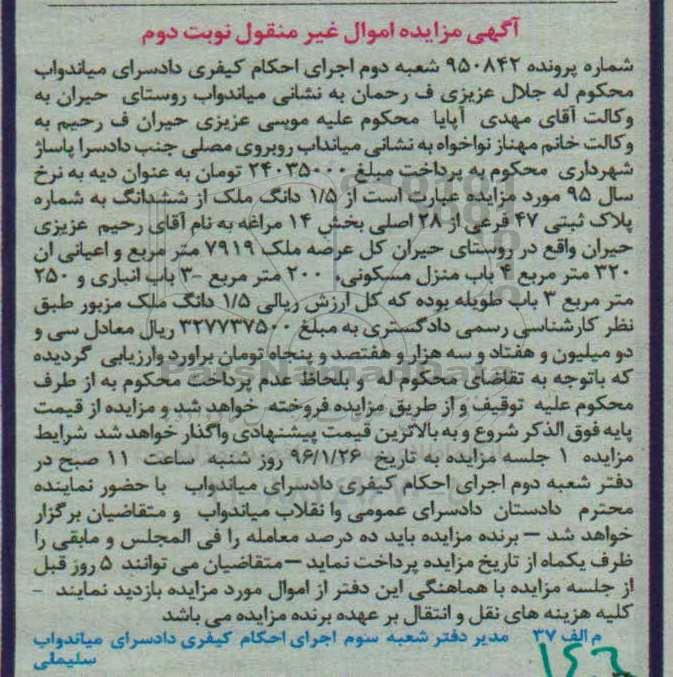 آگهی مزایده اموال غیر منقول نوبت دوم
شماره پرونده ۹۵۰۸۴۲ شعبه دوم اجرای احکام کیفری دادسرای میاندواب
محکوم له جلال عزیزی ف رحمان به نشانی میاندواب روستای حیران به
وکالت آقای مهدی آپایا محکوم علیه موسی عزیزی حیران ف رحیم به
وکالت خانم مهناز نواخواه به نشانی میانداب روبروی مصلی جنب دادسرا پاساژ
شهرداری محکوم به پرداخت مبلغ ۲۴۰۳۵۰۰۰ تومان به عنوان دیه به نرخ
سال ۹۵ مورد مزایده عبارت است از ۱/۵ دانگ ملک از ششدانگ به شماره
پلاک ثبتی ۴۷ فرعی از ۲۸ اصلی بخش ۱۴ مراغه به نام آقای رحیم عزیزی
حیران واقع در روستای حیران کل عرصه ملک ۷۹۱۹ متر مربع و اعیانی ان
۳۲۰ متر مربع ۴ باب منزل مسکونی، ۲۰۰ متر مربع -۳ باب انباری و ۲۵۰
متر مربع ۳ باب طویله بوده که کل ارزش ریالی ۱/۵ دانگ ملک مزبور طبق
نظر کارشناسی رسمی دادگستری به مبلغ ۳۲۷۷۳۷۵۰۰ ریال معادل سی و
دو میلیون و هفتاد و سه هزار و هفتصد و پنجاه تومان براورد وارزیابی گردیده
که باتوجه به تقاضای محکوم له و بلحاظ عدم پرداخت محکوم به از طرف
محکوم علیه توقیف و از طریق مزایده فروخته خواهد شد و مزایده از قیمت
پایه فوق الذکر شروع و به بالاترین قیمت پیشنهادی واگذار خواهد شد شرایط
مزایده ۱ جلسه مزایده به تاریخ ۹۶/۱/۲۶ روز شنبه ساعت ۱۱ صبح در
دفتر شعبه دوم اجرای احکام کیفری دادسرای میاندواب با حضور نماینده
محترم دادستان دادسرای عمومی وا نقلاب میاندواب و متقاضیان برگزار
خواهد شد – برنده مزایده باید ده درصد معامله را فی المجلس و مابقی را
ظرف یکماه از تاریخ مزایده پرداخت نماید –متقاضیان می توانند ۵ روز قبل
از جلسه مزایده با هماهنگی این دفتر از اموال مورد مزایده بازدید نمایند –
کلیه هزینه های نقل و انتقال بر عهده برنده مزایده می باشد
م الف ۳۷ مدیر دفتر شعبه سوم اجرای احکام کیفری دادسرای میاندواب
سلیملی
ParsNamadData